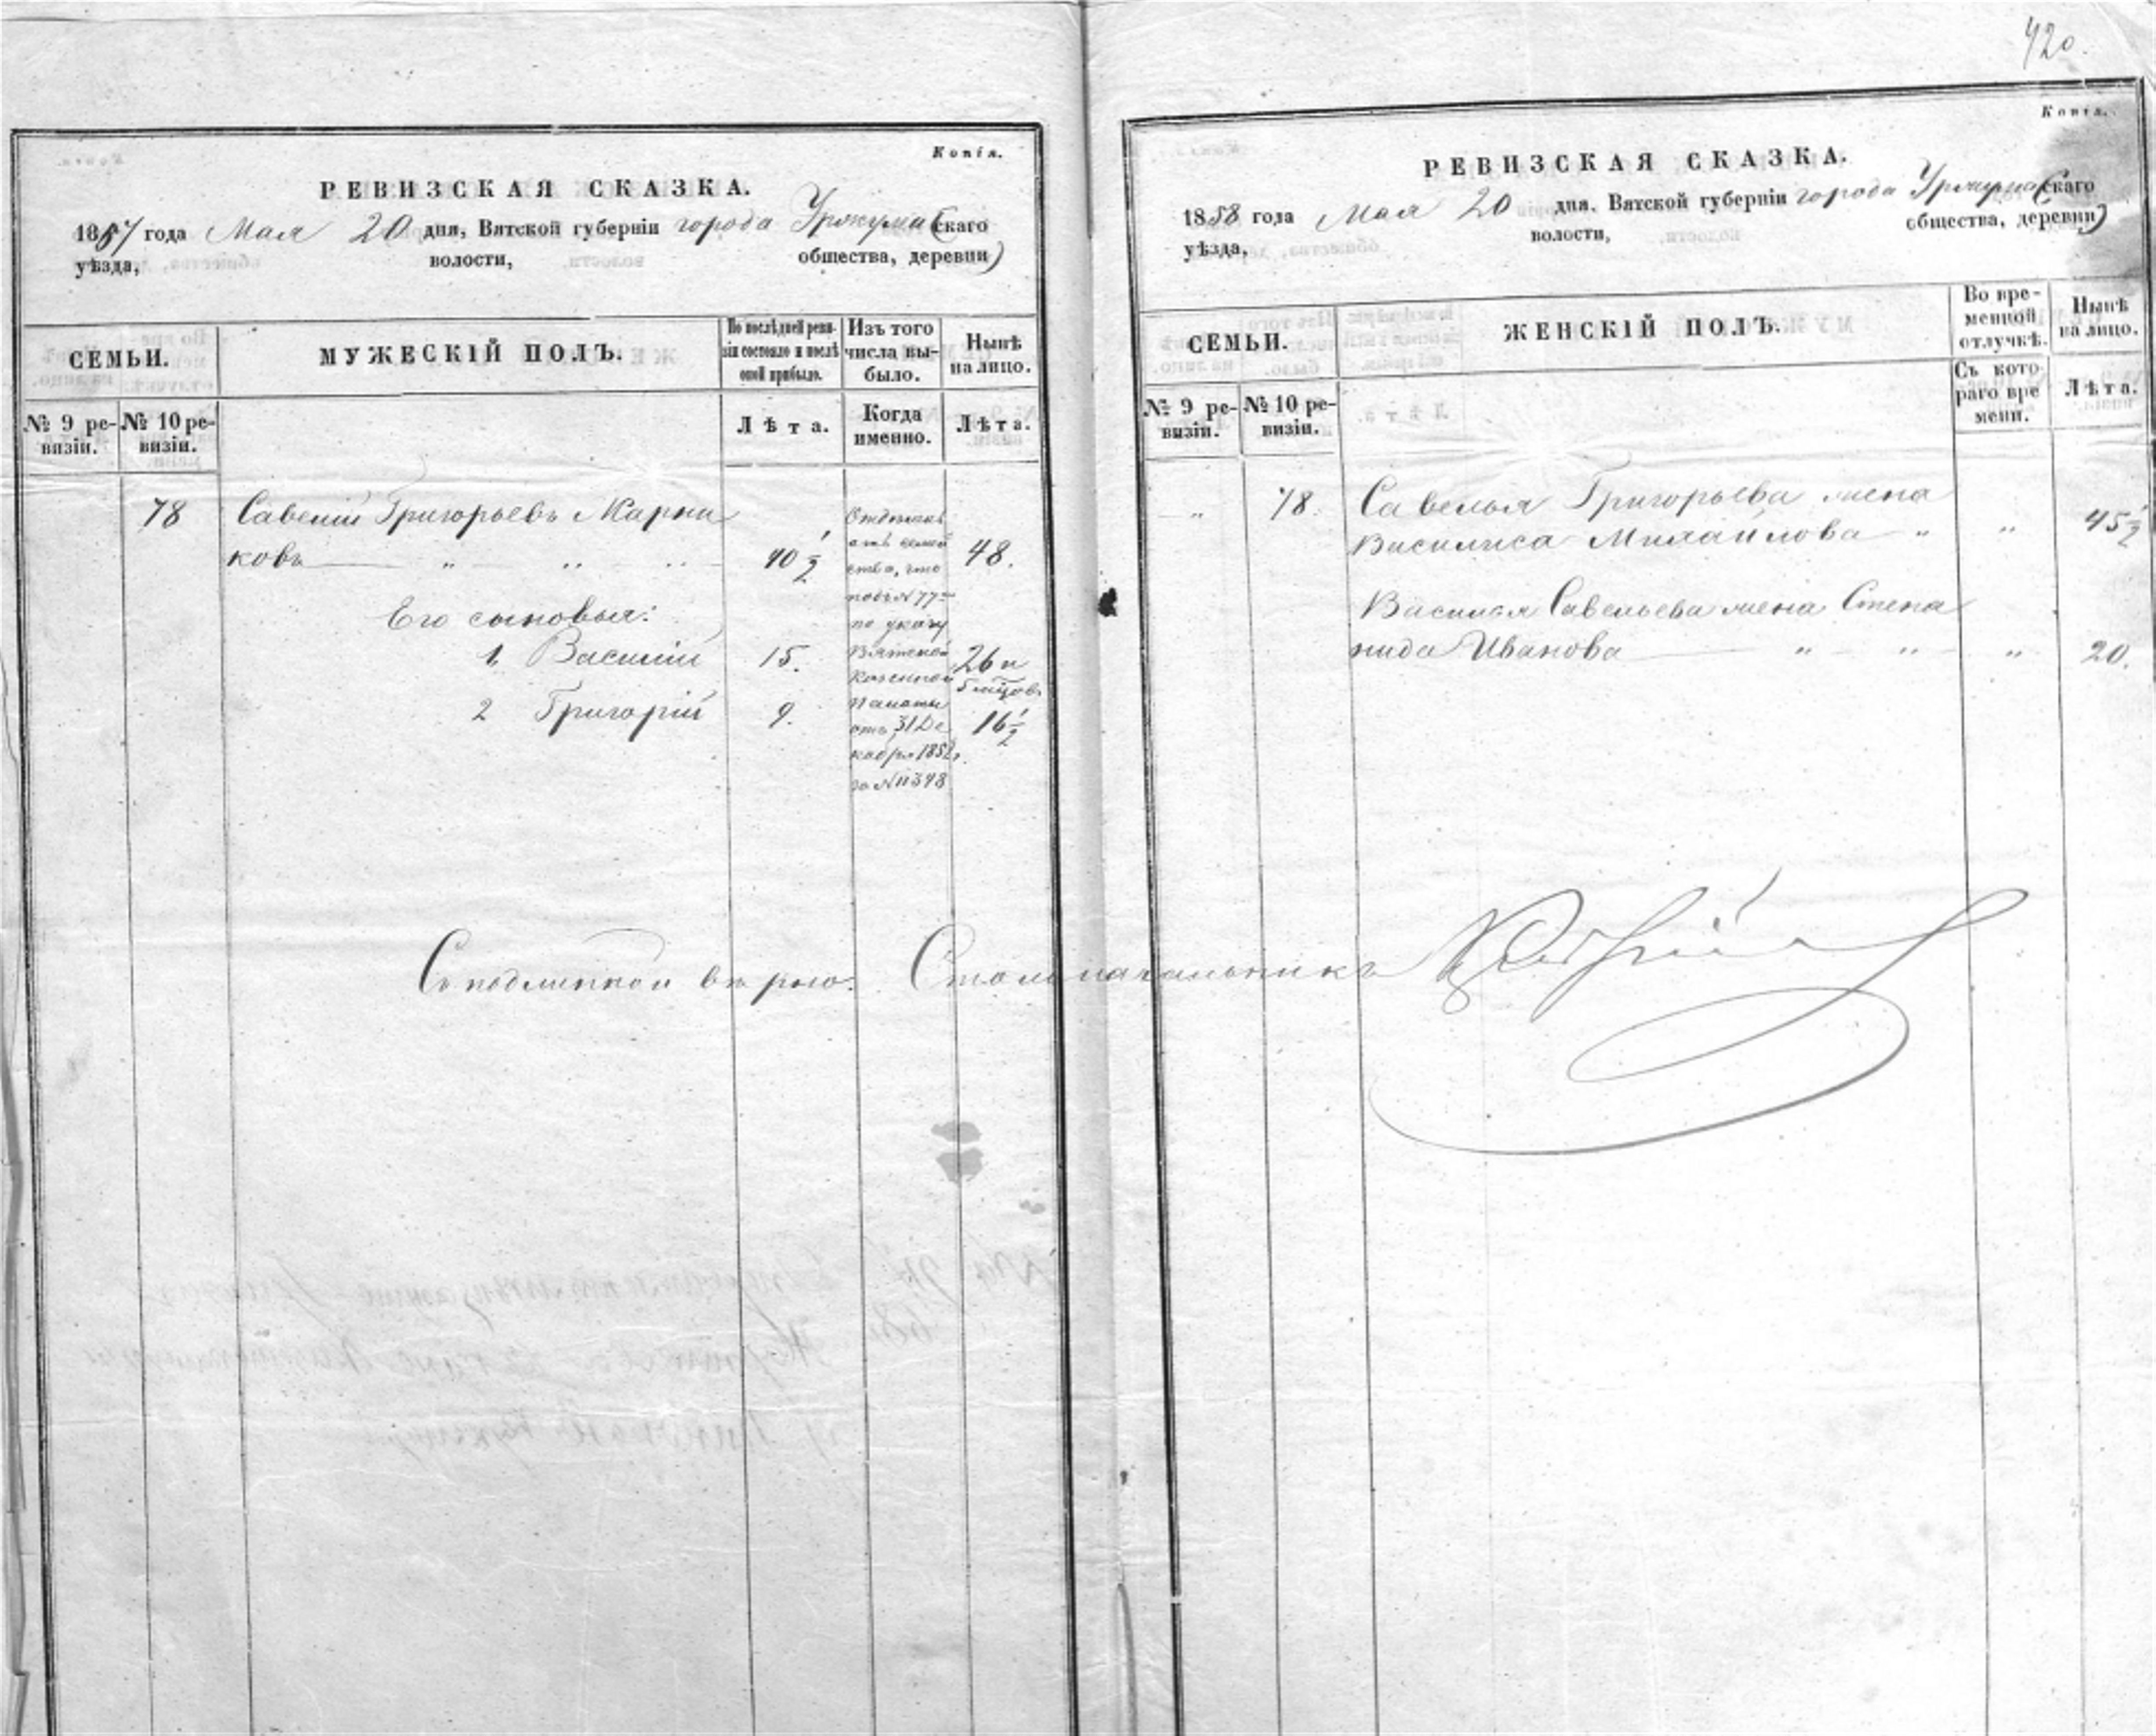 420.
Копія.
РЕВИЗСКАЯ СКАЗКА.
1857 года Мая 20 дня, Вятской губерніи города Уржума (скаго
уѣзда, волости, общества, деревни)
СЕМЬИ.
МУЖЕСКІЙ ПОЛЪ.
По послѣдней реви-
зіи состояло и послѣ
оной прибыло.
Изъ того
числа вы-
было.
Нынѣ
на лицо.
№ 9 ре-
визіи.
№ 10 ре-
визіи.
Лѣта.
Когда
именно.
Лѣта.
78 Савелій Григорьевъ Марки
ковъ " " " 40 1/2 48.
Его сыновья:
1 Василій 15. 26 и
5 мѣцовъ
2 Григорій 9. 16 1/2
отъ семей
ства, что
подъ №77
по указу
Вятской
Казенной
Палаты
отъ 31 Де
кабря 1852 г.
за №11348
Съ подлинной вѣрно: Столоначальникъ
Копія.
РЕВИЗСКАЯ СКАЗКА.
1858 года Мая 20 дня, Вятской губерніи города Уржума (скаго
уѣзда, волости, общества, деревни)
СЕМЬИ.
ЖЕНСКІЙ ПОЛЪ.
Во вре-
менной
отлучкѣ.
Нынѣ
на лицо.
№ 9 ре-
визіи.
№ 10 ре-
визіи.
Съ кото-
раго вре
мени.
Лѣта.
" 78. Савелья Григорьева жена
Василиса Михайлова " " 45 1/2
Василья Савельева жена Степа
нида Иванова " " " 20.